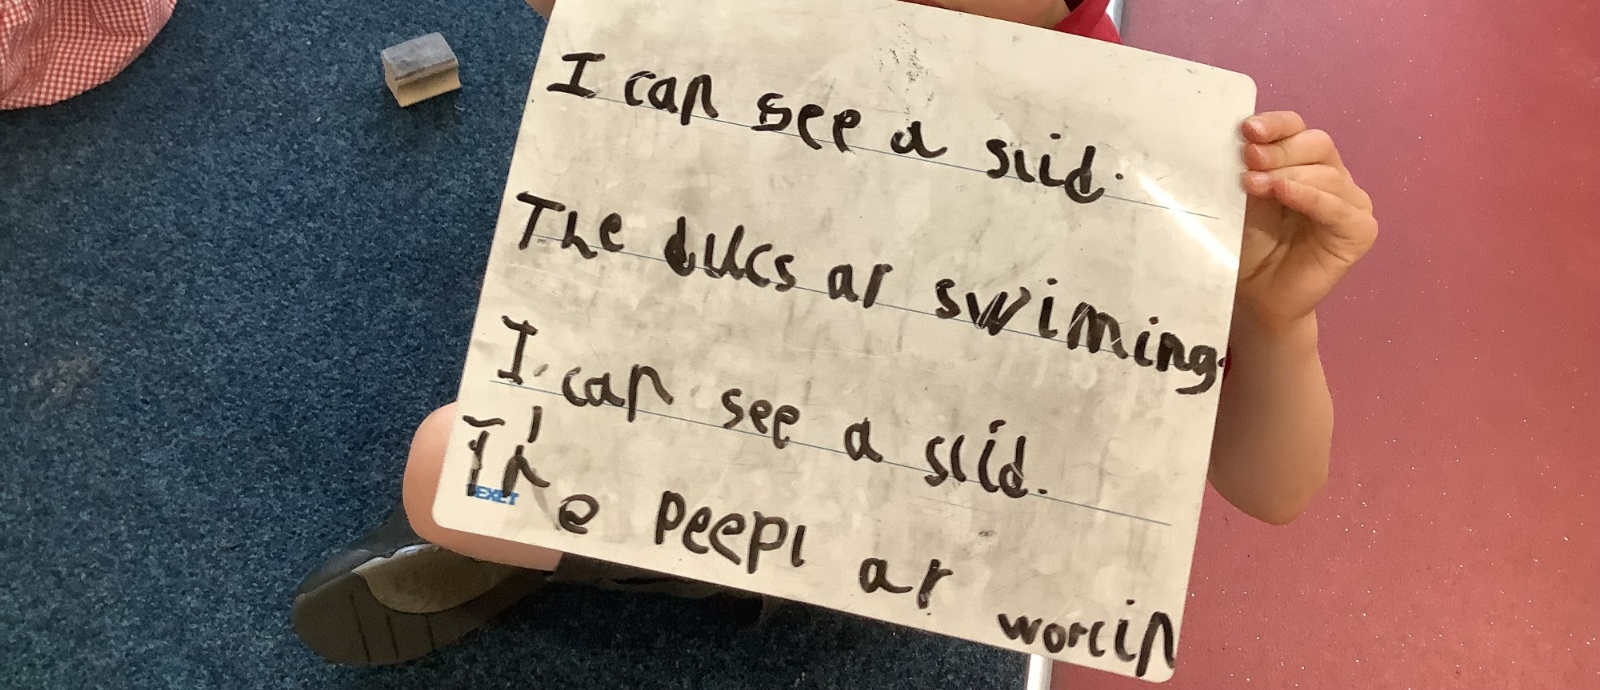 I can see a slid.
The ducs ar swiming.
I can see a slid.
The peepl ar worcin